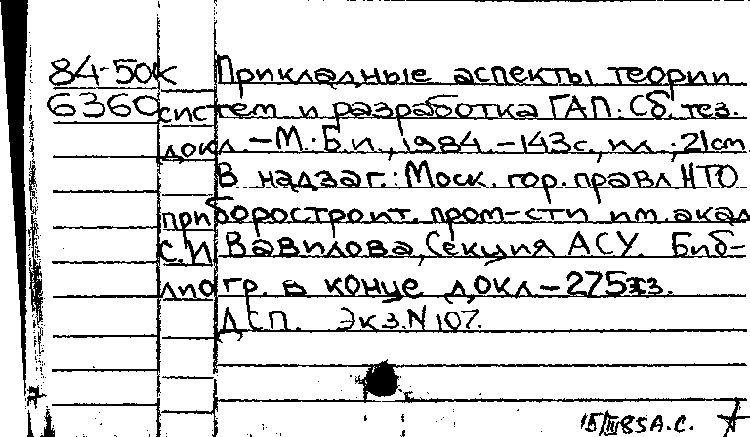 84-50к Прикладные аспекты теории
6360 систем и разработка ГАП: Сб. тез.
докл. – М.: Б.и., 1984. – 143 с., ил.; 21 cm
В надзаг.: Моск. гор. правл. НТО
приборостроит. пром-сти им. акад.
С.И. Вавилова, Секция АСУ. Биб-
лиогр. в конце докл. – 275 экз.
ДСП. Экз. N 107.
15/III 85 А.С.